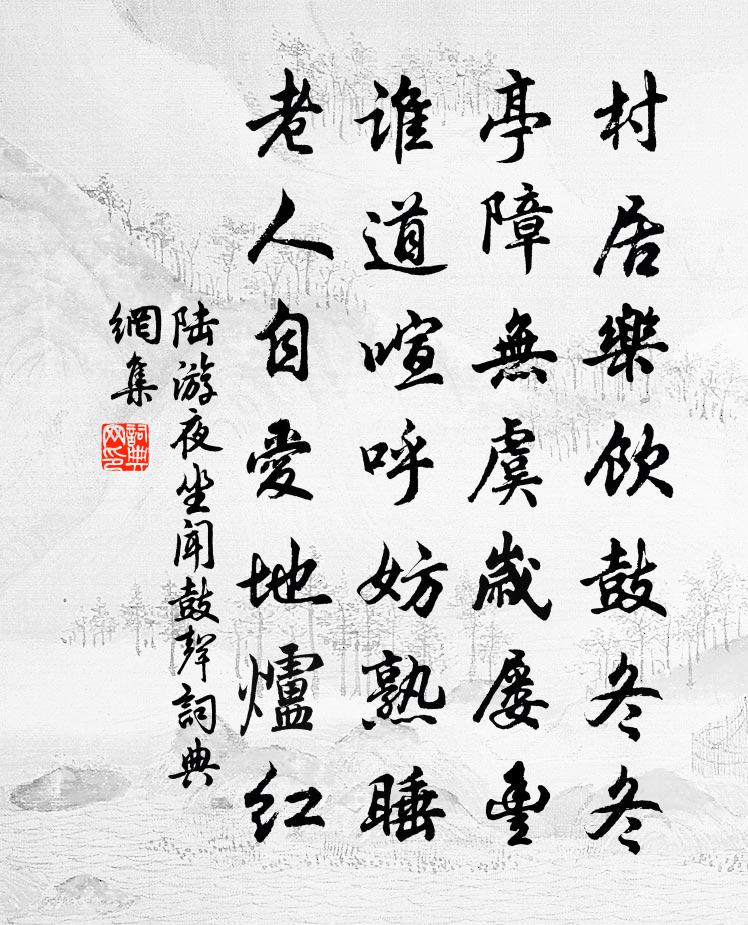 村居樂飲鼓冬冬
亭障無虞歲屢豐
誰道喧呼妨熟睡
老人自愛地爐紅
陆游夜坐闻鼓聲詞典
網集
詞典
网印